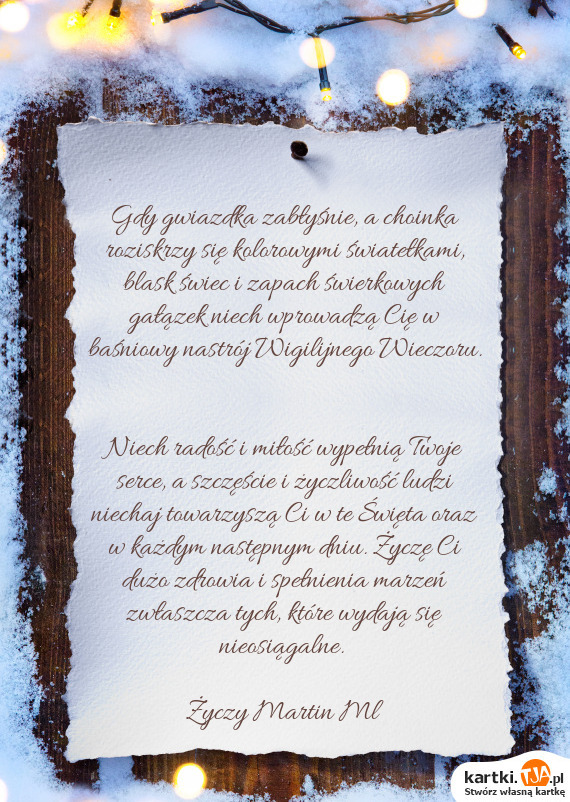 Gdy gwiazdka zabłyśnie, a choinka
roziskrzy się kolorowymi światełkami,
blask świec i zapach świerkowych
gałązek niech wprowadzą Cię w
baśniowy nastrój Wigilijnego Wieczoru.
Niech radość i miłość wypełnią Twoje
serce, a szczęście i życzliwość ludzi
niechaj towarzyszą Ci w te Święta oraz
w każdym następnym dniu. Życzę Ci
dużo zdrowia i spełnienia marzeń
zwłaszcza tych, które wydają się
nieosiągalne.
Życzy Martin Ml
kartki.TJA.pl
Stwórz własną kartkę